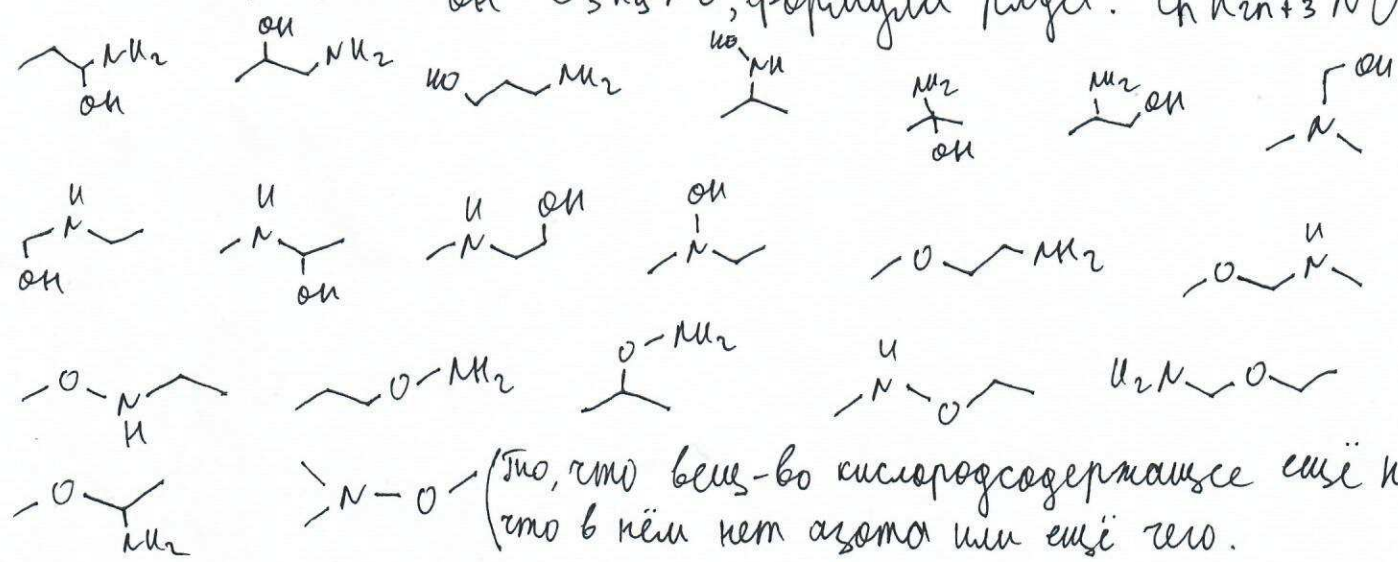 формула ряда: CnH2n+3NO
NH2 OH
OH NH2
HO NH2
HO NH
NH2 OH
NH2 OH
N OH
H N OH
H N OH
H N OH
OH N
O NH2
O H N
O N H
O NH2
O NH2
H N O
H2N O
O NH2
N - O (То, что вещ-во кислородсодержащее ещё
что в нём нет азота или ещё чего.